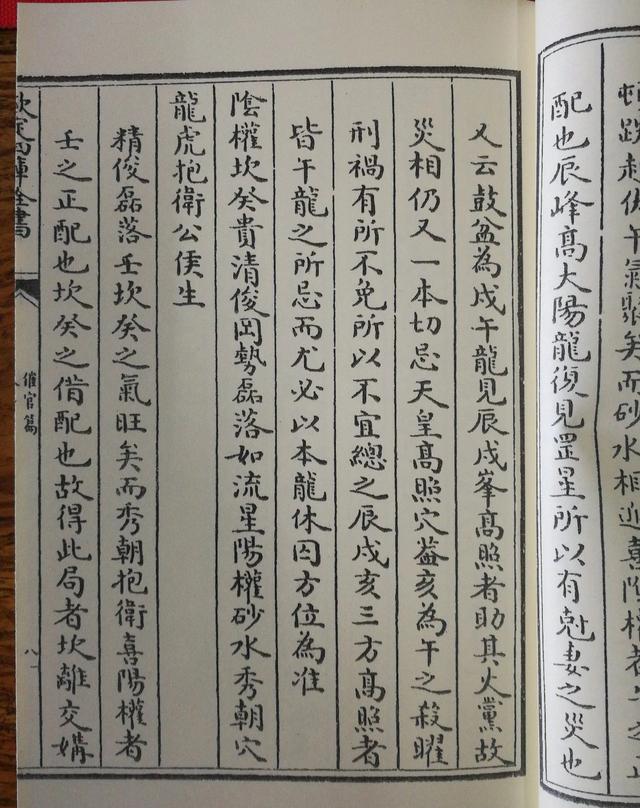 配也辰峰高大陽龍復見罡星所以有尅妻之災也
又云鼓盆為戌午龍見辰戌峯高照者助其火黨故
災相仍又一本切忌天皇高照穴葢亥為午之殺曜
刑禍有所不免所以不宜總之辰戌亥三方高照者
皆午龍之所忌而尤必以本龍休囚方位為准
陰權坎癸貴清俊岡勢磊落如流星陽權砂水秀朝穴
龍虎抱衛公侯生
精俊磊落壬坎癸之氣旺矣而秀朝抱衛喜陽權者
壬之正配也坎癸之借配也故得此局者坎離交媾
欽定四庫全書
催官篇
八